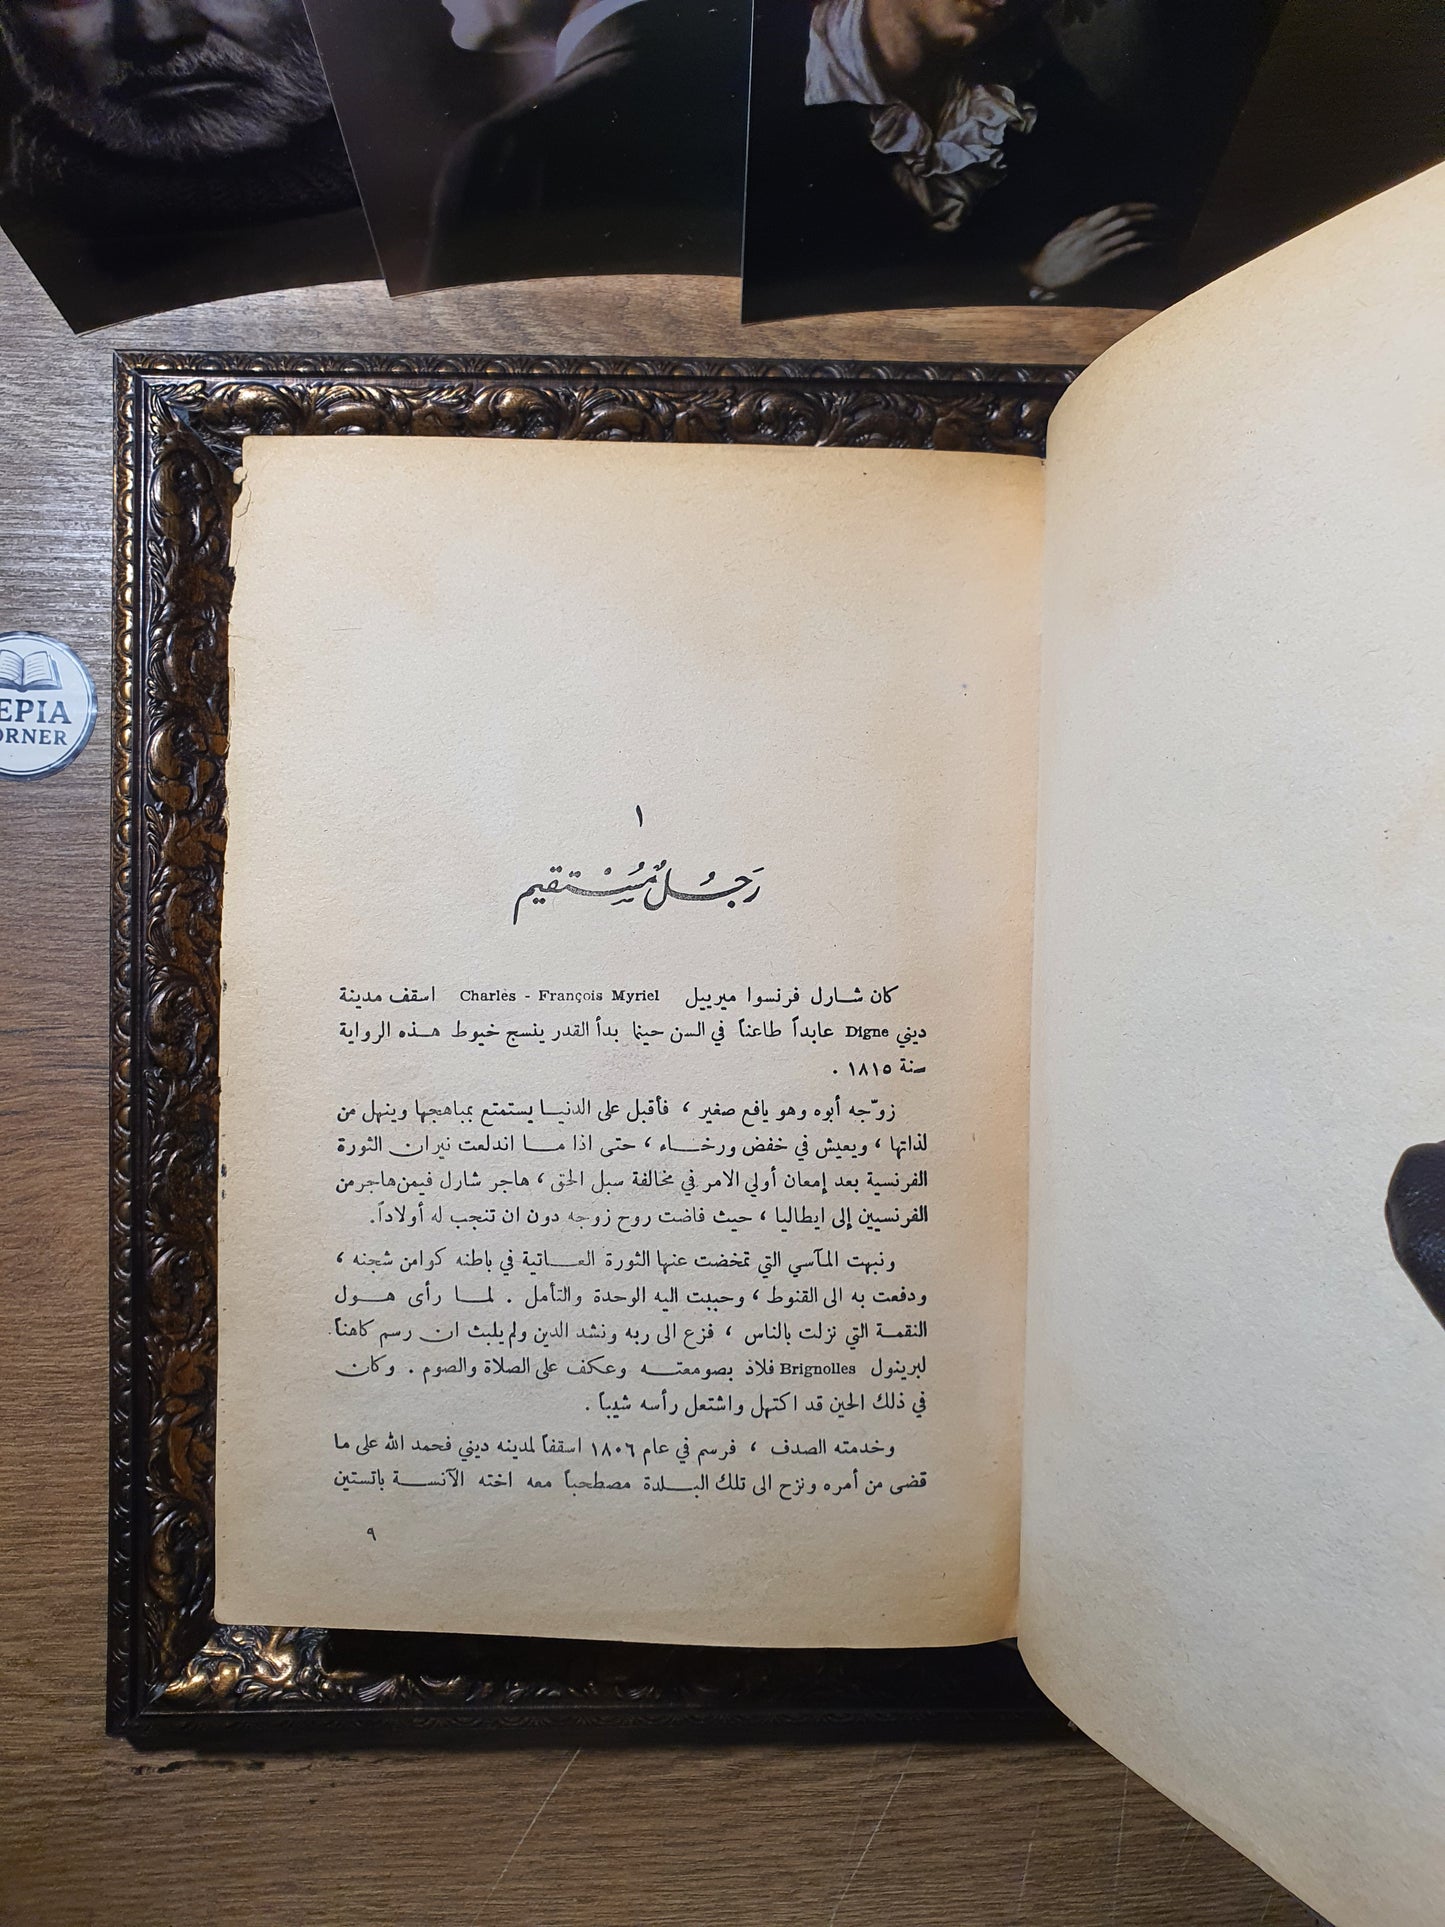 EPIA
ORNER
١
رَجُلٌ مُسْتقيم
كان شارل فرنسوا ميرييل Charles - François Myriel اسقف مدينة
ديني Digne عابداً طاعناً في السن حينما بدأ القدر ينسج خيوط هذه الرواية
سنة ١٨١٥ .
زوّجه أبوه وهو يافع صغير ، فأقبل على الدنيا يستمتع بمباهجها وينهل من
لذاتها ، ويعيش في خفض ورخاء ، حتى اذا ما اندلعت نيران الثورة
الفرنسية بعد إمعان أولي الامر في مخالفة سبل الحق ، هاجر شارل فيمن هاجر من
الفرنسيين إلى ايطاليا ، حيث فاضت روح زوجه دون ان تنجب له أولاداً.
ونبهت المآسي التي تمخضت عنها الثورة العاتية في باطنه كوامن شجنه ،
ودفعت به الى القنوط ، وحببت اليه الوحدة والتأمل . لما رأى هول
النقمة التي نزلت بالناس ، فزع الى ربه ونشد الدين ولم يلبث ان رسم كاهناً
لبرينول Brignolles فلاذ بصومعته وعكف على الصلاة والصوم . وكان
في ذلك الحين قد اكتهل واشتعل رأسه شيباً .
وخدمته الصدف ، فرسم في عام ١٨٠٦ اسقفاً لمدينه ديني فحمد الله على ما
قضى من أمره ونزح الى تلك البلدة مصطحباً معه اخته الآنسة باتستين
٩